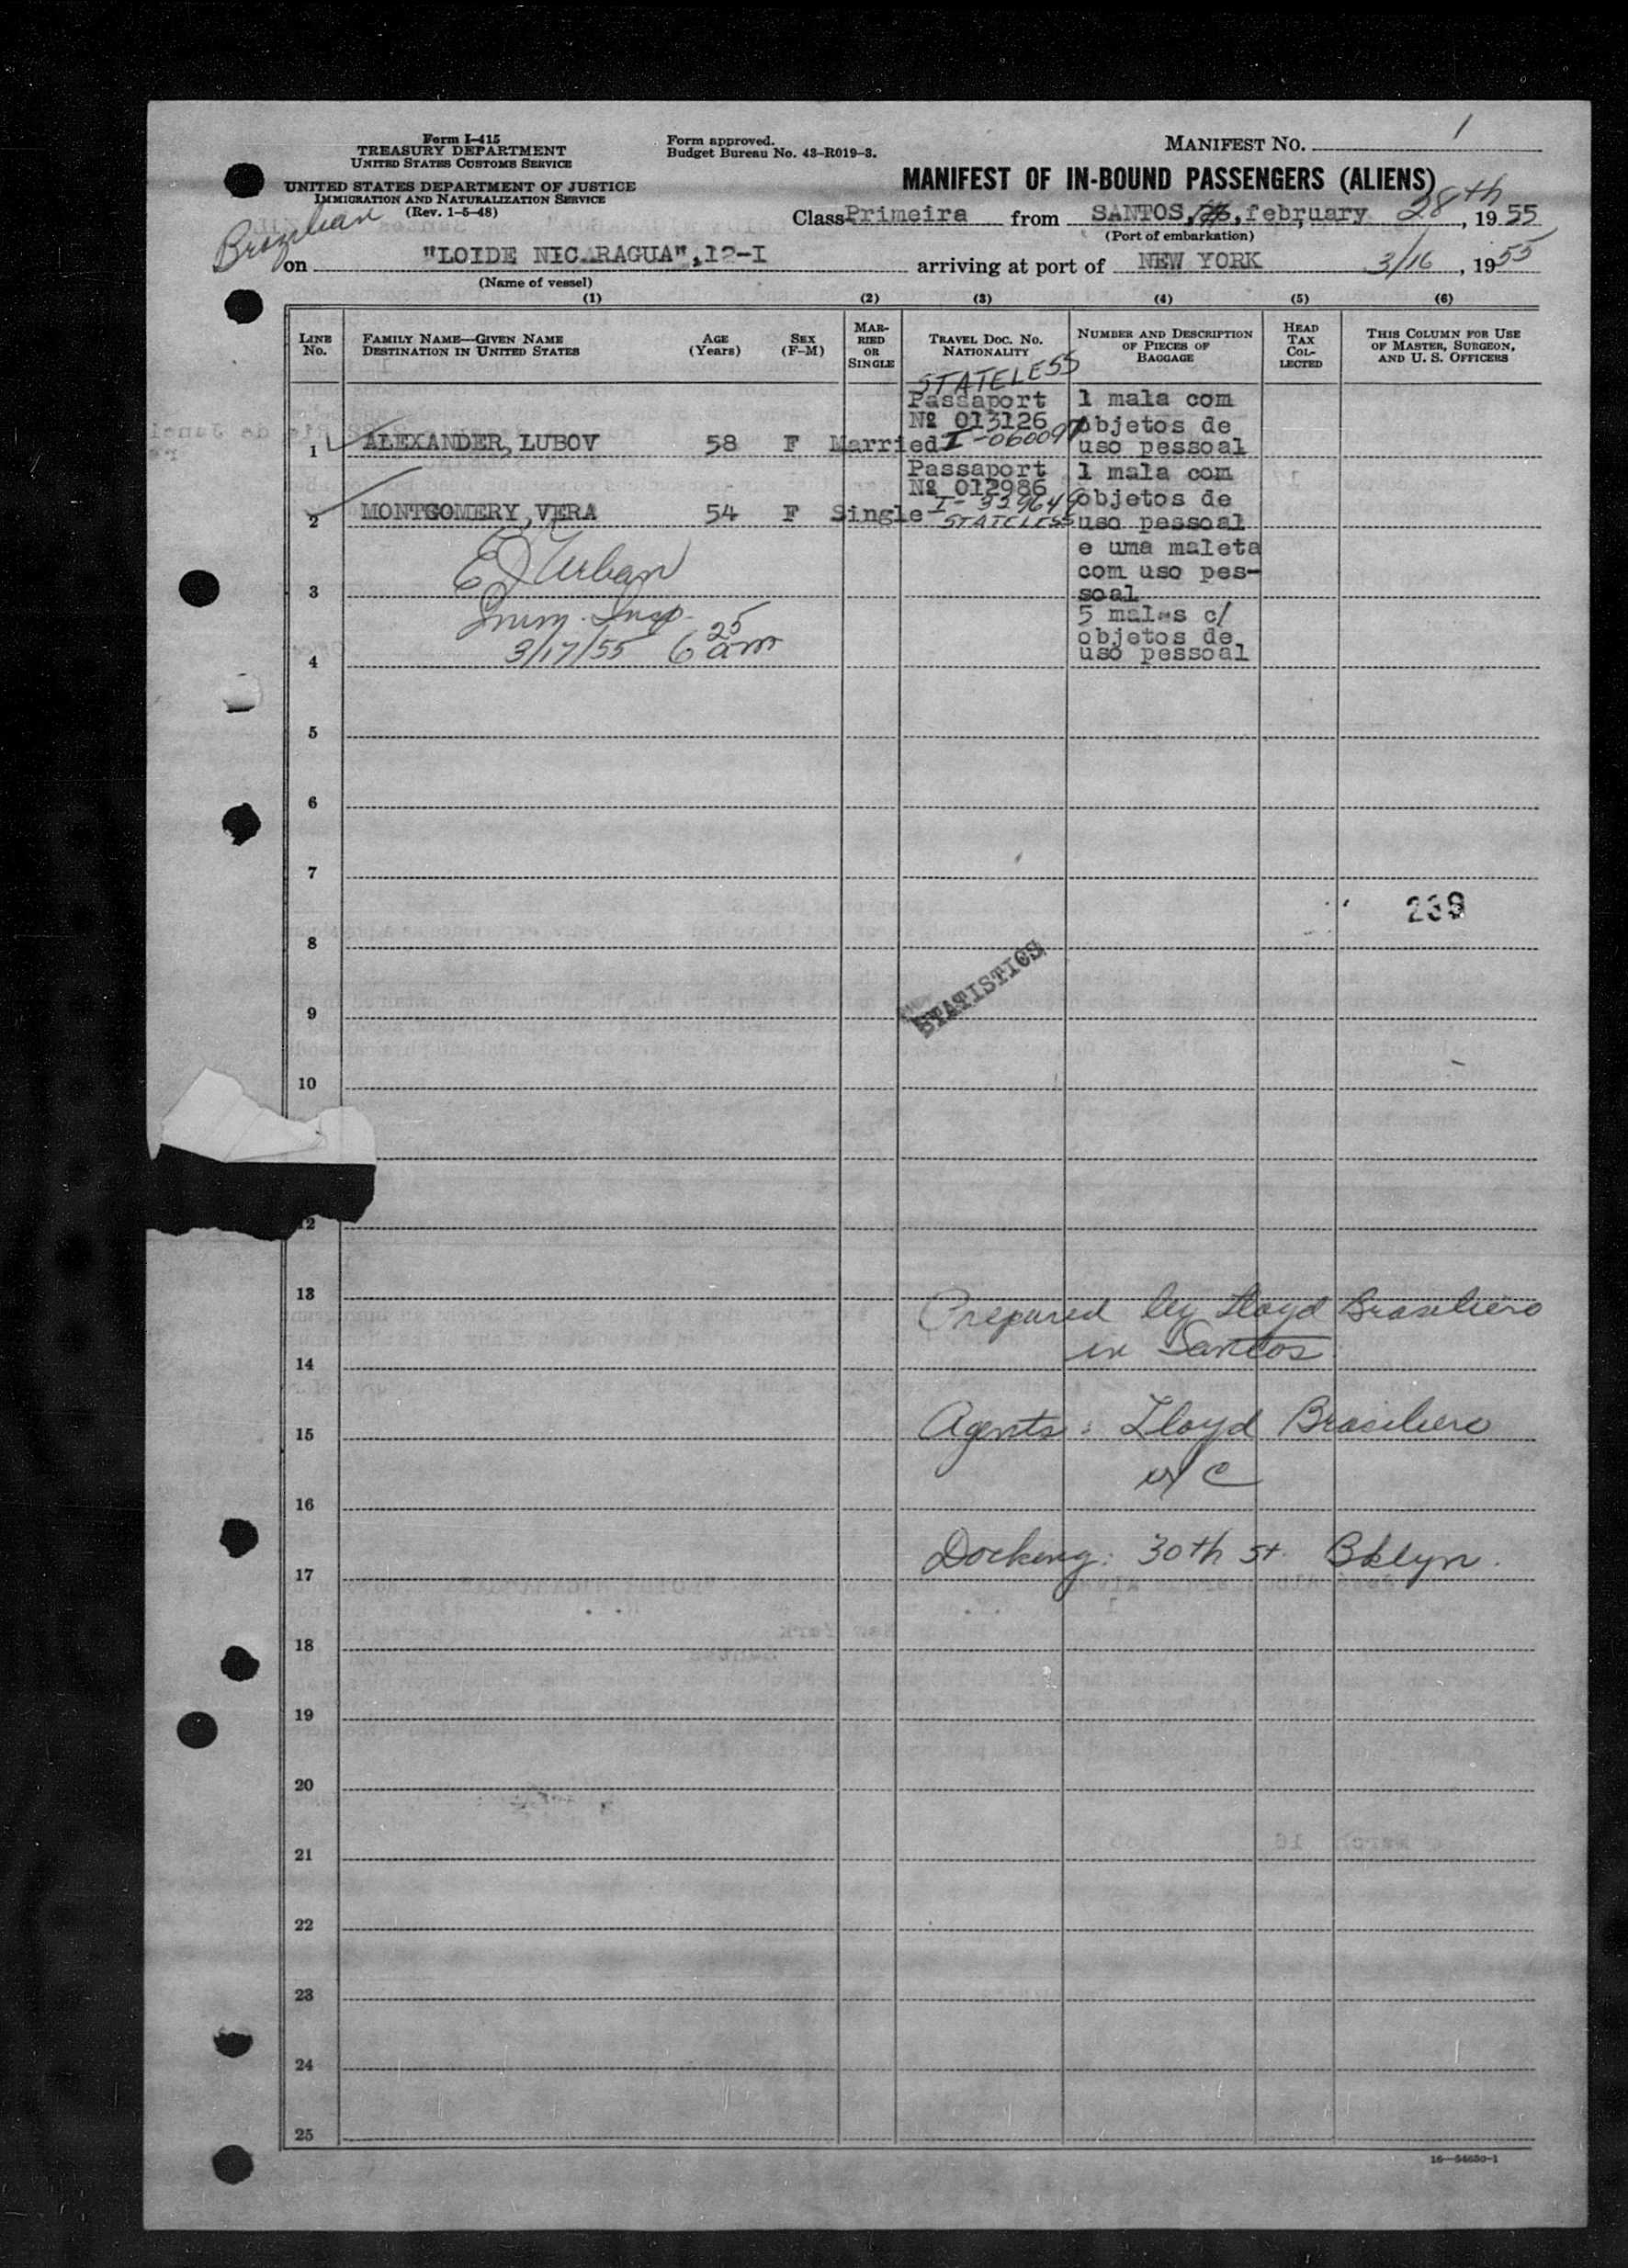 Form I-415
TREASURY DEPARTMENT
UNITED STATES CUSTOMS SERVICE
UNITED STATES DEPARTMENT OF JUSTICE
IMMIGRATION AND NATURALIZATION SERVICE
(Rev. 1-5-48)
Form approved.
Budget Bureau No. 43-R019-3.
MANIFEST NO. 1
MANIFEST OF IN-BOUND PASSENGERS (ALIENS)
Class Primeira from SANTOS, february 28th, 1955
(Port of embarkation)
Brazilian
on "LOIDE NICARAGUA", 12-I arriving at port of NEW YORK 3/16, 1955
(Name of vessel)
(1) (2) (3) (4) (5) (6)
LINE NO.
FAMILY NAME—GIVEN NAME
DESTINATION IN UNITED STATES
AGE (Years)
SEX (F-M)
MARRIED OR SINGLE
TRAVEL DOC. NO.
NATIONALITY
NUMBER AND DESCRIPTION
OF PIECES OF
BAGGAGE
HEAD TAX COLLECTED
THIS COLUMN FOR USE
OF MASTER, SURGEON,
AND U. S. OFFICERS
STATELESS
Passaport 1 mala com
Nº 013126 objetos de
1 ALEXANDER, LUBOV 58 F Married I-060097 uso pessoal
Passaport 1 mala com
Nº 012986 objetos de
I-339649
2 MONTGOMERY, VERA 54 F Single STATELESS uso pessoal
e uma maleta
com uso pes-
3 soal
5 malas c/
objetos de
4 uso pessoal
E J Urban
Imm. Insp.
3/17/55 6 25 am
5
6
7
239
8
STATISTICS
9
10
12
13
Prepared by Lloyd Brasiliero
in Santos
14
Agents: Lloyd Brasiliero
15
16
Docking: 30th St. Bklyn.
17
18
19
20
21
22
23
24
25
16—54650-1